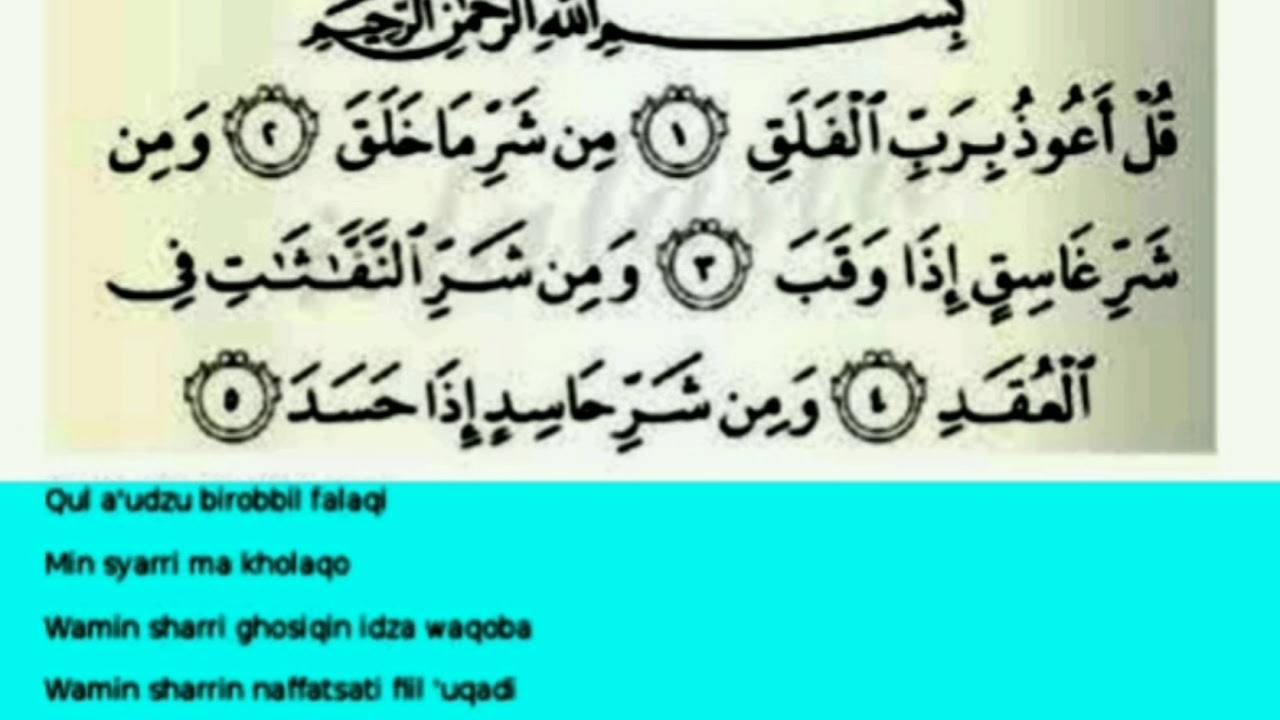 بِسْمِ اللَّهِ الرَّحْمَٰنِ الرَّحِيمِ
قُلْ أَعُوذُ بِرَبِّ ٱلْفَلَقِ ١ مِن شَرِّ مَا خَلَقَ ٢ وَمِن
شَرِّ غَاسِقٍ إِذَا وَقَبَ ٣ وَمِن شَرِّ ٱلنَّفَّٰثَٰتِ فِى
ٱلْعُقَدِ ٤ وَمِن شَرِّ حَاسِدٍ إِذَا حَسَدَ ٥
Qul a'udzu birobbil falaqi
Min syarri ma kholaqo
Wamin sharri ghosiqin idza waqoba
Wamin sharrin naffatsati fiil 'uqadi